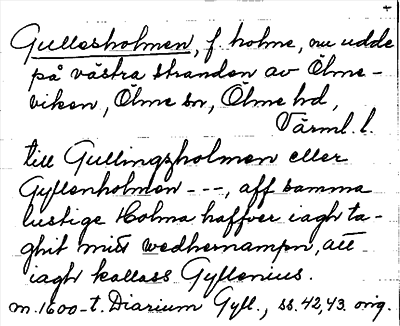 Gullesholmen, f. holme, nu udde
på västra stranden av Ölme-
viken, Ölme sn, Ölme hd,
Värml. l.
till Gullingzholmen eller
Gyllenholmen ---, aff samma
lustige Holma haffver iagh ta-
ghit mitt wedhernampn, att
iagh kallass Gyllenius.
m. 1600-t. Diarium Gyll., ss. 42, 43. orig.